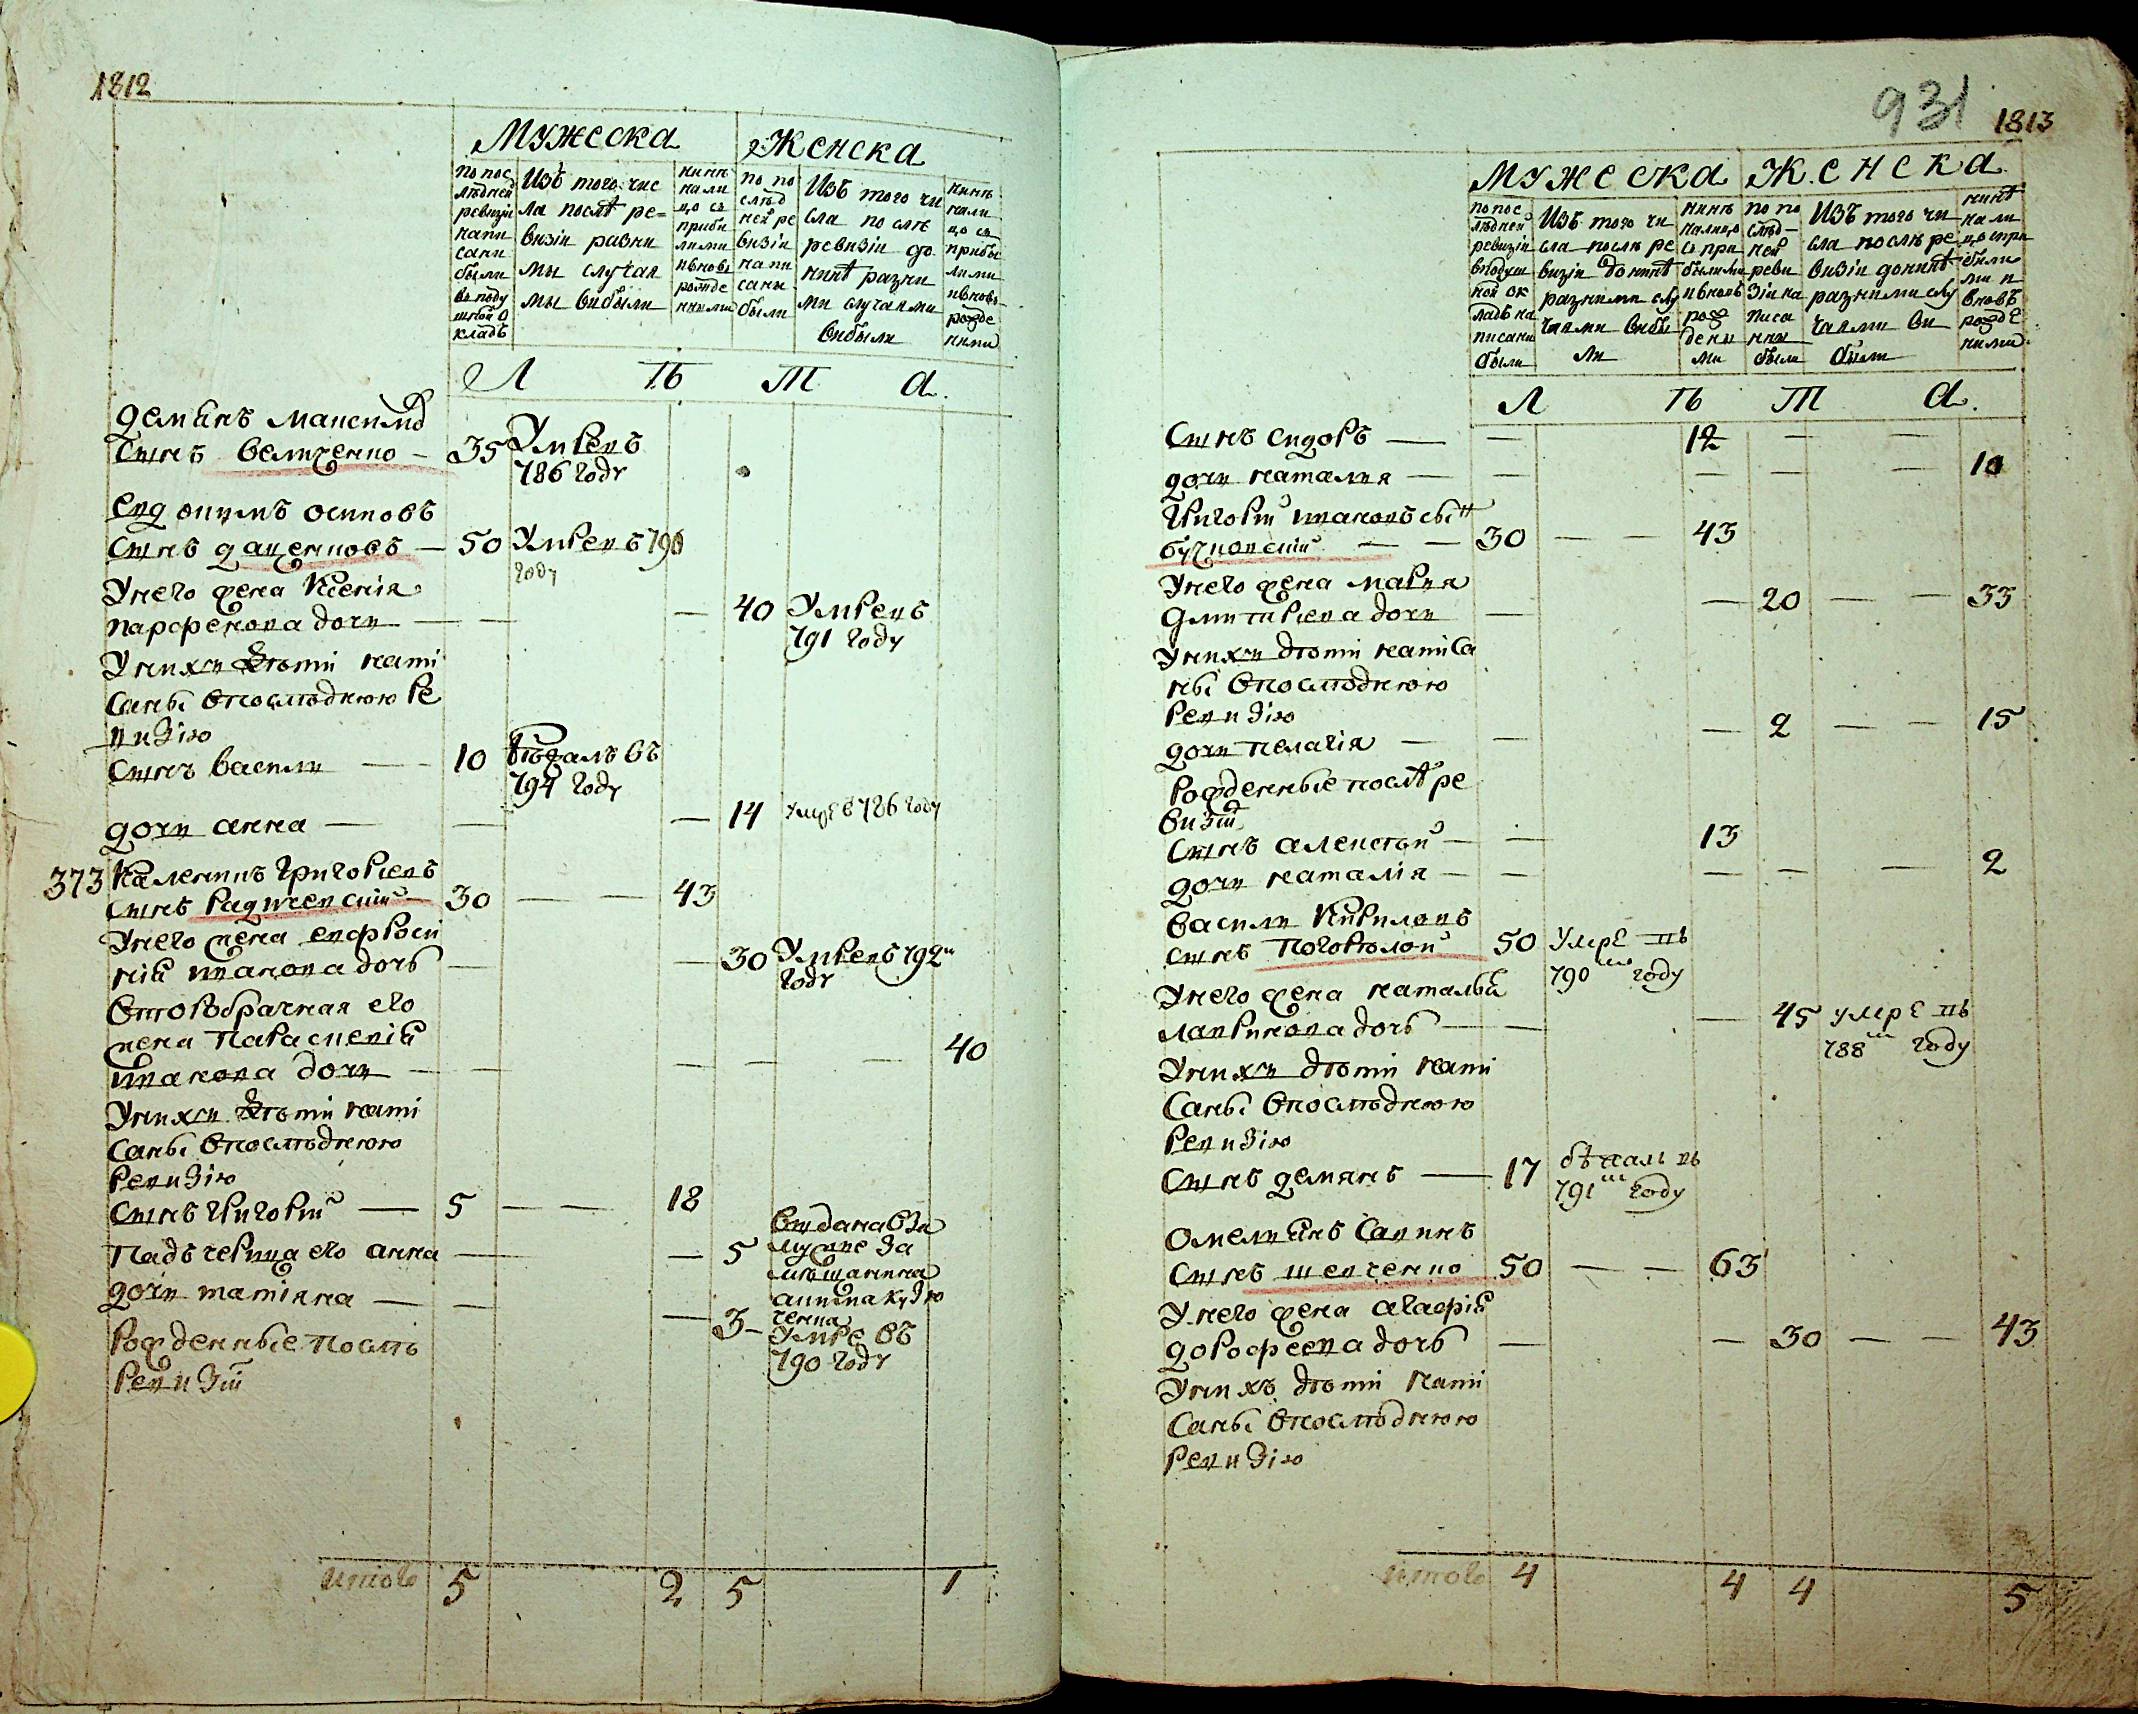 1812
Мужеска
Женска
по пос
лѣдней
ревизiи
напи
сани
были
въ поду
шной о
кладъ
Изъ того чис
ла послѣ ре=
визiи разни
мы случая
мы выбыли
нинѣ
нали
цо съ
приби
лими
ивновь
рожде
нними
по по
слѣд
ней ре
визiи
напи
саны
были
Изъ того чи
сла послѣ
ревизiи до
нинѣ разни
ми случаями
выбыли
нинѣ
нали
цо съ
прибы
лими
ивновь
рожде
ними
Л ѣ т а.
демянъ
сынъ величенко – 35 Умревъ
786 году
Евдокимъ осиповъ
сынъ даценковъ – 50 Умревъ 790
году
Унего жена Ксенiя
парфенова дочи — — — 40 Умревъ
791 году
Унихъ дѣти напи
саны впослѣднюю ре
визiю
сынъ василий — 10 бѣжалъ въ
794 году
дочи анна — — — 14 умре 786 году
373 Калениикъ григориевъ
сынъ радчевский – 30 — — 43
Унего жена евфроси
нiя иванова дочь — — 30 Умревъ 792
году
второбрачная его
жена Параскевiя
иванова дочи — — — — — 40
Унихъ дѣти напи
саны впослѣднюю
ревизiю
сынъ григорий — 5 — — 18
Падъчерица его анна — — 5 выдана въза
мужие за
мѣщанина
кузю
ченка
дочи татiяна — — — 3 – Умре въ
790 году
Рожденные послѣ
ревизiи
итого 5 2 5 1
931
1813
Мужеска
Женска
по пос
лѣдней
ревизiи
вподуш
ной ок
ладъ на
писани
были
Изъ того чи
сла послѣ ре
визiи донинѣ
разними слу
чаями выбы
ли
нинѣ
налицо
с при
былими
ивновь
рож
дены
ми
по по
слѣд–
ней
реви
зiи на
писа
нны
были
Изъ того чи
сла послѣ ре
визiи донинѣ
разними слу
чаями вы
были
нинѣ
нали
цо спри
были
ми и
вновъ
рожде
ними
Л ѣ т а.
сынъ сидоръ — — 12 — —
дочи наталия — — — — — 10
Григорий ивановъ сынъ
бучковский — — 30 — — 43
Унего жена мария
дмитриева дочи — — 20 — — 33
Унихъ дѣти написа
ны впослѣднюю
ревизiю
дочи пелагiя — — — 2 — — 15
Рожденные послѣ ре
визiи
сынъ алексѣй — — 13
дочи наталiя — — — — — 2
василий Кириловъ
сынъ Погорѣлой 50 умре въ
790 году
Унего жена наталья
лавринова дочь — — — 45 умре въ
788 году
Унихъ дѣти напи
саны впослѣднюю
ревизiю
сынъ демянъ — 17 бѣжалъ въ
791 году
Омелянъ савинъ
сынъ шевченко 50 — — 63
Унего жена агафiя
дорофеева дочь — — 30 — — 43
Унихъ дѣти напи
саны впослѣднюю
ревизiю
итого 4 4 4 5